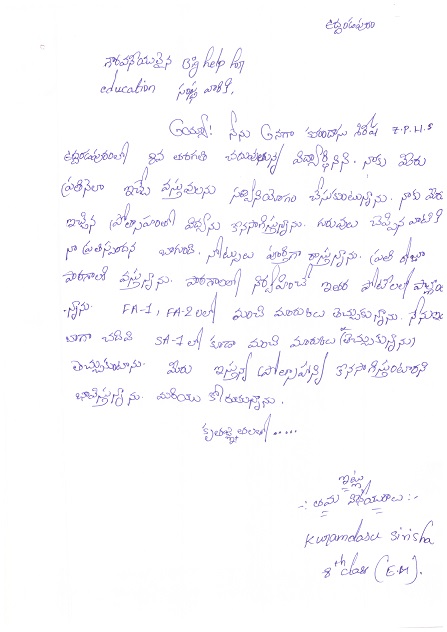 ఉద్దండపురం
గౌరవనీయులైన Big help for
education సంస్థ వారికి,
అయ్యా! నేను అనగా కురందాసు శిరీష Z.P.H.S
ఉద్దండపురంలో 8వ తరగతి చదువుతున్న విద్యార్థినిని. నాకు మీరు
ప్రతినెలా ఇచ్చే వస్తువులను సద్వినియోగం చేసుకుంటున్నాను. నాకు మీరు
ఇచ్చిన ప్రోత్సాహంతో విద్యను కొనసాగిస్తున్నాను. గురువులు చెప్పిన వాటికి
నా ప్రతిస్పందన బాగుంది. నోట్సులు పూర్తిగా రాస్తున్నాను. ప్రతి రోజూ
పాఠశాలకి వస్తున్నాను. పాఠశాలలో నిర్వహించే ఇతర పోటీలలో పాల్గొం
-న్నాను. FA-1, FA-2లలో మంచి మార్కులు తెచ్చుకున్నాను. నేను
బాగా చదివి SA-1లో కూడా మంచి మార్కులు (తెచ్చుకున్నాను)
తెచ్చుకుంటాను. మీరు ఇస్తున్న ప్రోత్సాహాన్ని కొనసాగిస్తుంటారని
భావిస్తున్నాను. మరియు కోరుతున్నాను.
కృతజ్ఞతలతో .....
ఇట్లు
-: తమ విధేయురాలు :-
Kuramdasu Sirisha
8th class (E.M).